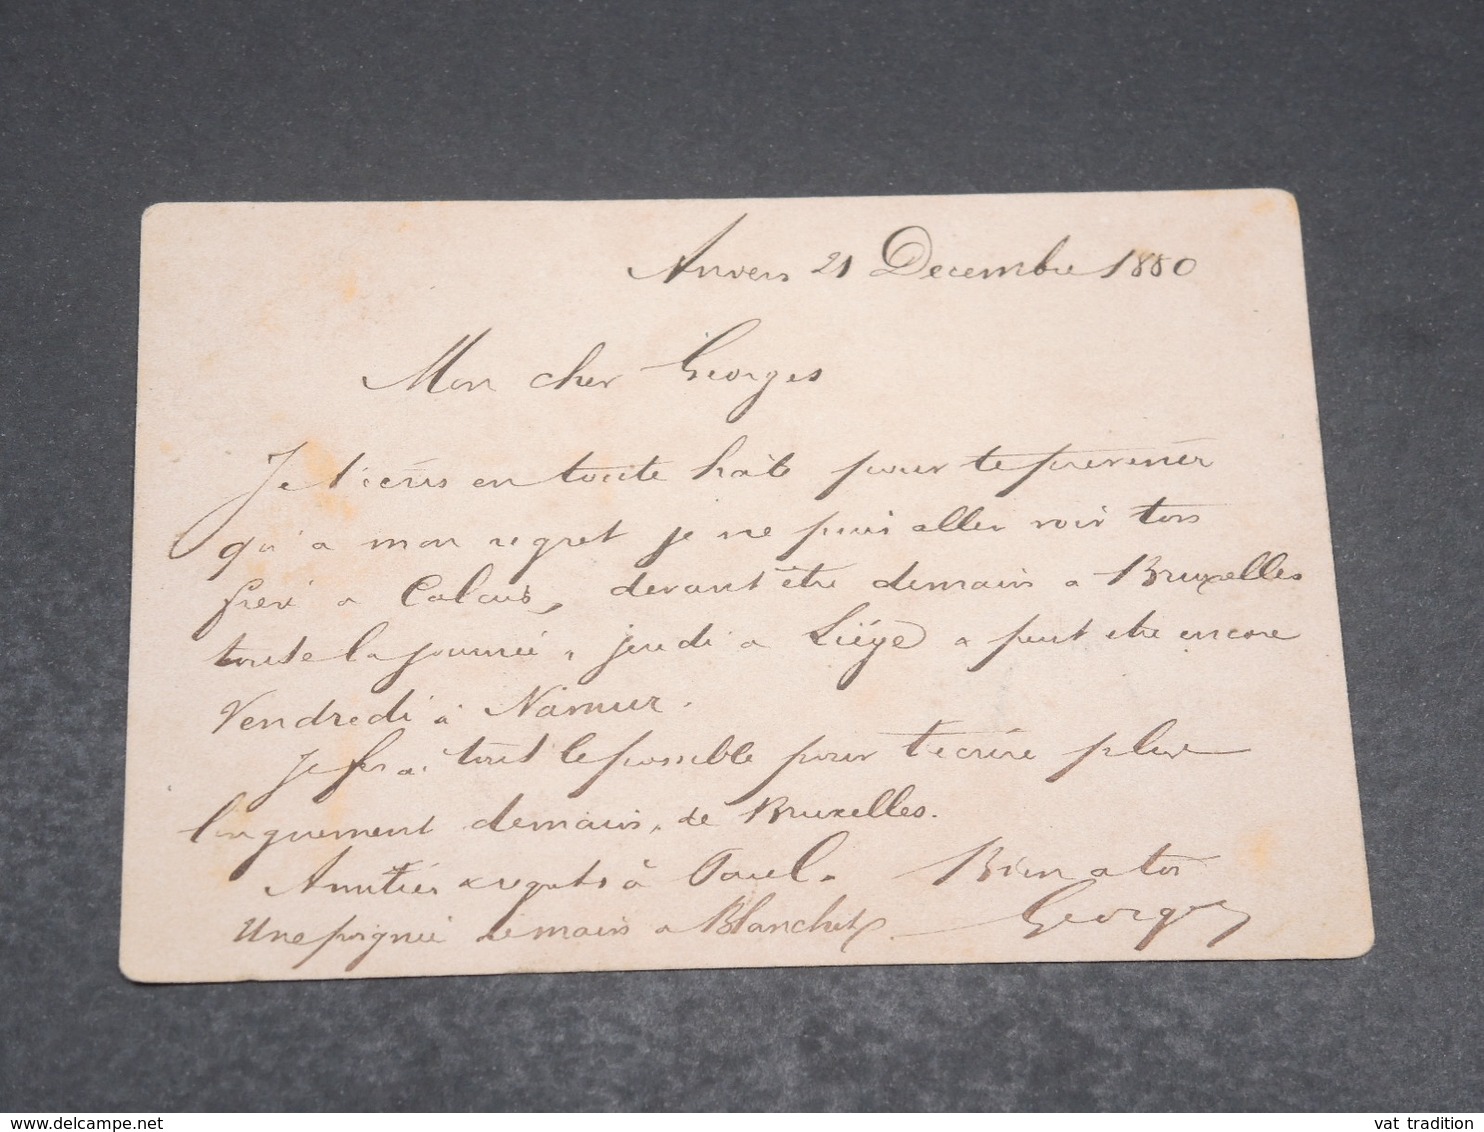 Anvers 21 Decembre 1880
Mon cher Georges
Je t'écris en toute hâte pour te prevenir
qu'a mon regret je ne puis aller voir ton
frere a Calais, devant être demain a Bruxelles
toute la journée, jeudi a Liége & peut etre encore
Vendredi à Namur.
Je ferai tout le possible pour t'écrire plus
longuement demain, de Bruxelles.
Amitiés & regrets à Paul. Bien a toi
Une poignée de main a Blanchet Georges
© delcampe.net
vat tradition